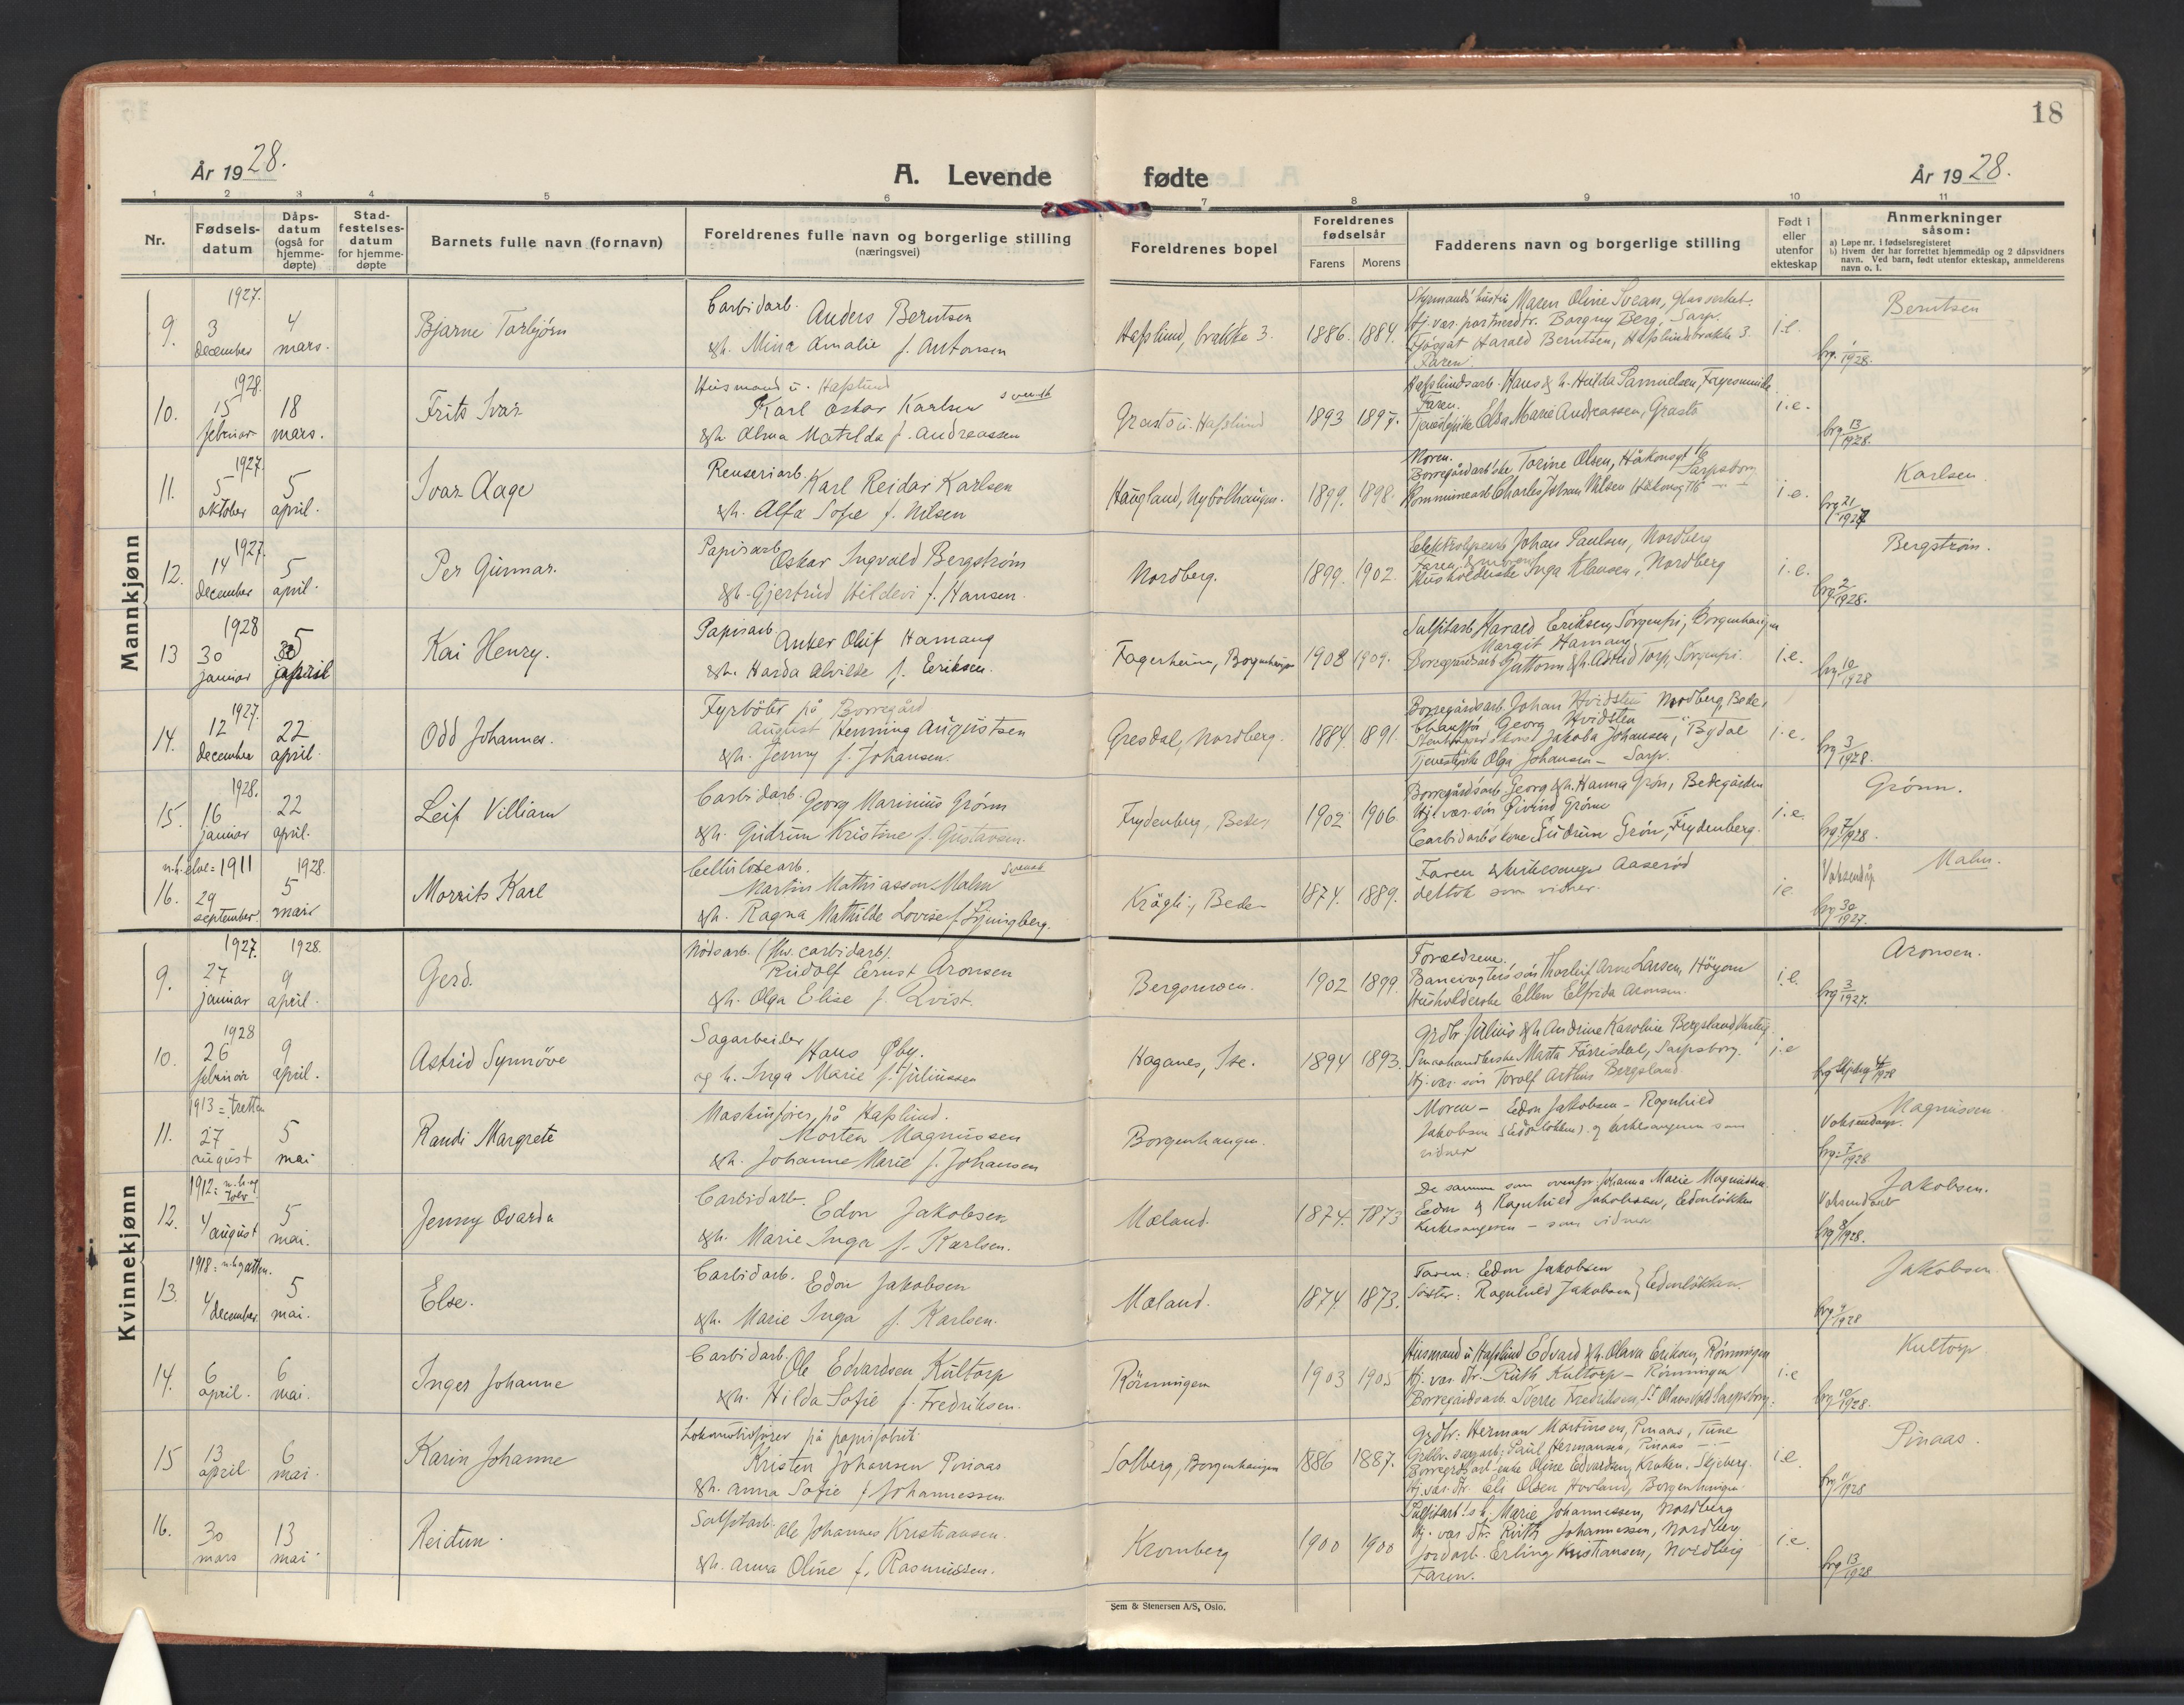 18
År 1928.
A. Levende
fødte
År 1928.
1 2 3 4 5 6 7 8 9 10 11
Nr.
Fødsels-
datum
Dåps-
datum
(også for
hjemme-
døpte)
Stad-
festelses-
datum
for hjemme-
døpte
Barnets fulle navn (fornavn)
Foreldrenes fulle navn og borgerlige stilling
(næringsvei)
Foreldrenes bopel
Foreldrenes
fødselsår
Farens
Morens
Fadderens navn og borgerlige stilling
Født i
eller
utenfor
ekteskap
Anmerkninger
såsom:
a) Løpe nr. i fødselsregisteret
b) Hvem der har forrettet hjemmedåp og 2 dåpsvidners
navn. Ved barn, født utenfor ekteskap, anmelderens
navn o. l.
Mannkjønn
9. 1927. 3 december
4 mars.
Bjarne Torbjørn
Carbidarb. Anders Berntsen
&h. Mina Amalie f. Antonsen
Hafslund, brakke 3.
1886. 1884.
Styrmands hustru Maren Oline Svean, Glasverket.
Hj. vær. portnerdtr. Borgny Berg, Sarp.
Harald Berntsen, Hafslundsbrakke 3.
Faren.
i.e.
Berntsen
brg. 1/1928.
10. 1928. 15 februar
18 mars.
Frits Ivar
Husmand u. Hafslund
Karl Oskar Karlsen svensk
&h. Alma Matilda f. Andreassen
Grastø u. Hafslund
1893 1897.
Hafslundsarb. Hans & h. Hulda Samuelsen,
Faren.
Tjenestepike Elsa Marie Andreassen, Grastø
i.e.
brg 13/1928.
11. 1927. 5 oktober
5 april.
Ivar Aage
Renseriarb. Karl Reidar Karlsen
&h. Alfa Sofie f. Nilsen
Haugland, Nybolhaugen.
1899. 1898.
Moren.
Torine Olsen, Håkonsgt 16
Sarpsborg
Kommunearb Charles Johan Nilsen
i.e.
Karlsen
brg 21/1927
12. 1927. 14 december
5 april.
Per Gunnar.
Papirarb Oskar Ingvald Bergstrøm
&h. Gjertrud Hildevi f. Hansen.
Nordberg.
1899. 1902.
Johan Paulsen, Nordberg
Faren & moren
Husholderske Inga Klausen, Nordberg
i.e.
Bergstrøm.
brg 2/1928.
13 1928 30 januar
5 april
Kai Henry.
Papirarb Anker Oluf Hamang
&h. Harda Alvilde f. Eriksen.
Fagerheim, Borgenhaugen
1908 1909.
Sulfitarb Harald Eriksen, Sorgenfri, Borgenhaugen
Margit Hamang
Borregårdsarb Guttorm &h. Astrid Torp, Sorgenfri.
i.e.
brg 10/1928
14. 1927. 12 december
22 april.
Odd Johannes.
Fyrbøter på Borregård
August Henning Augustsen
&h. Jenny f. Johansen.
Gresdal, Nordberg.
1884. 1891.
Borregårdsarb. Johan Hvidsten Nordberg, Bede.
Chauffør Georg Hvidsten
Jakoba Johansen, Bydal
Tjenestepike Olga Johansen - Sarp.
i.e.
brg 3/1928.
15. 1928. 16 januar
22 april.
Leif Villiam
Carbidarb. Georg Marinius Grönn
&h. Gudrun Kristine f. Gustavsen.
Frydenberg, Bede.
1902 1906
Borregårdsarb. Georg &h. Hanna Grøn, Bedegården
Hj. vær. søn Øivind Grönn
Carbidarb's kone Gudrun Grøn, Frydenberg.
i.e.
Grönn.
brg 7/1928.
16. 1911 29 september
1928. 5 mai
Morrits Karl
Cellulosearb.
Martin Mathiasson Malm svensk
&h. Ragna Mathilde Lovise f. Ljungberg.
Krågli, Bede-
1874. 1889.
Faren & kirkesanger Aaserød
deltok som vidner.
i e
Malm.
Voksendåp
brg 30/1927.
Kvinnekjønn
9. 1927. 27 januar
1928. 9 april.
Gerd.
Nødsarb. (Hv. carbidarb).
Rudolf Ernst Aronsen
&h. Olga Elise f. Qvist.
Bergsmoen.
1902 1899.
Foreldrene.
Banevogters søn Thorleif Arne Larsen, Høyum
Husholderske Ellen Elfrida Aronsen.
i.e.
Aronsen.
brg 3/1927.
10. 1928 26 februar
9 april.
Astrid Synnöve
Sagarbeider
Hans Øby.
og h. Inga Marie f. Juliussen
Haganes, Ise.
1894 1893.
Grdbr Julius &h Andrine Karoline Bergsland Varteig.
Smaahandlerske Marta Furrisdal, Sarpsborg.
Hj. vær. søn Torolf Arthur Bergsland.
i.e
11. 1913 = tretten 27 august
5 mai
Randi Margrete
Maskinfører på Hafslund.
Morten Magnussen
&h. Johanne Marie f. Johansen
Borgenhaugen.
Moren - Edon Jakobsen - Ragnhild
Jakobsen (Edonløkken) og kirkesangeren som
vidner
Magnussen
Voksendåp.
brg. 7/1928
12. 1912 4 august
5 mai.
Jenny Ovarda
Carbidarb. Edon Jakobsen
&h. Marie Inga f. Karlsen.
Mæland.
1874. 1873
De samme som ovenfor. Johanna Marie Magnussen
Edon & Ragnhild Jakobsen, Edonløkken
Kirkesangeren - som vidner
Jakobsen.
Voksendåp
brg 8/1928.
13. 1918 4 december
5 mai.
Else.
Carbidarb. Edon Jakobsen
&h. Marie Inga f. Karlsen.
Mæland.
1874 1873.
Faren: Edon Jakobsen
Søster: Ragnhild Jakobsen } Edonløkken.
Jakobsen
brg 9/1928
14. 6 april.
6 mai.
Inger Johanne
Carbidarb. Ole Edvardsen Kultorp
&h. Hilda Sofie f. Fredriksen.
Rönningen
1903 1905
Husmand u/Hafslund Edvard &h. Olava Eriksen, Rönningen
Hj. vær. dtr. Ruth Kultorp - Rönningen
Borregårdsarb. Sverre Fredriksen, St Olavs Vold Sarpsborg.
i.e
Kultorp
brg 10/1928.
15 13 april
6 mai.
Karin Johanne
Lokomotivfører på papirfabrik
Kristen Johansen Pinaas
&h. Anna Sofie f Johannessen
Solberg, Borgenhaugen
1886 1887.
Grdbr. Herman Martinsen, Pinaas, Tune
Paul Hermansen, Pinaas
enke Oline Edvardsen, Kraken. Skjeberg.
Hj. vær. dtr. Eli Olsen Hovland, Borgenhaugen
i.e.
Pinaas.
brg 11/1928
16. 30 mars
13 mai
Reidun.
Sulfitarb. Ole Johannes Kristiansen.
&h. Anna Oline f. Rasmussen.
Kronberg
1900 1900
Sulfitarb's h. Marie Johannessen, Nordberg
Hj. vær dtr. Ruth Johannessen, Nordberg
Jordarb. Erling Kristiansen, Nordberg
Faren.
i.e.
brg 13/1928
Sem & Stenersen A/S, Oslo.